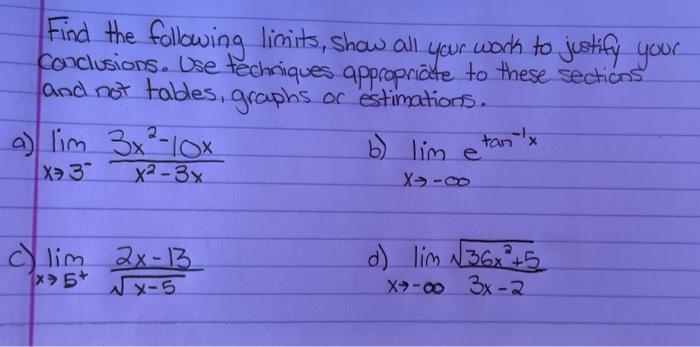 Find the following limits, show all your work to justify your
Conclusions. Use techniques appropriate to these sections
and not tables, graphs or estimations.
a) lim x→3⁻ (3x²-10x)/(x²-3x)
b) lim x→-∞ e^(tan⁻¹x)
c) lim x→5⁺ (2x-13)/√(x-5)
d) lim x→-∞ √(36x²+5)/(3x-2)